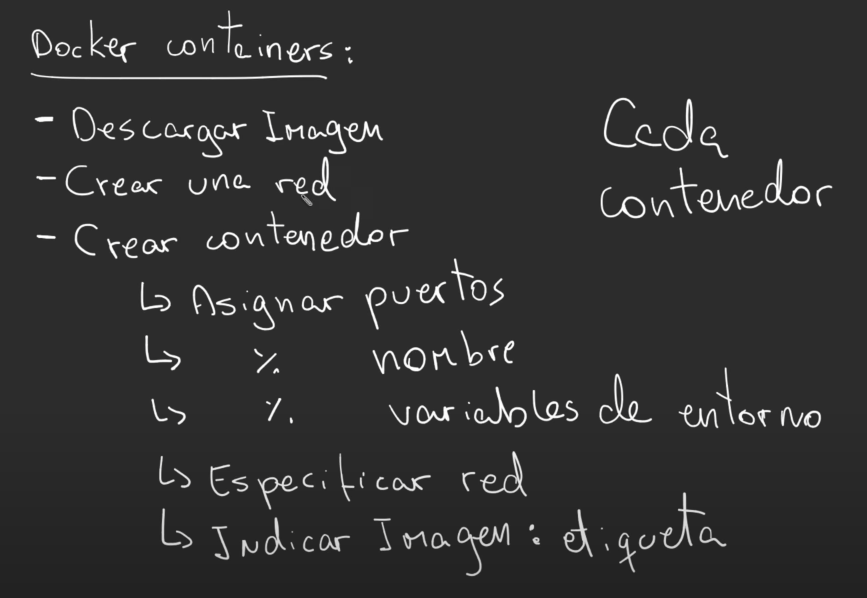 Docker containers:
- Descargar Imagen
- Crear una red
- Crear contenedor
↳ Asignar puertos
↳ ٪ nombre
↳ ٪ variables de entorno
↳ Especificar red
↳ Indicar Imagen: etiqueta
Cada
contenedor